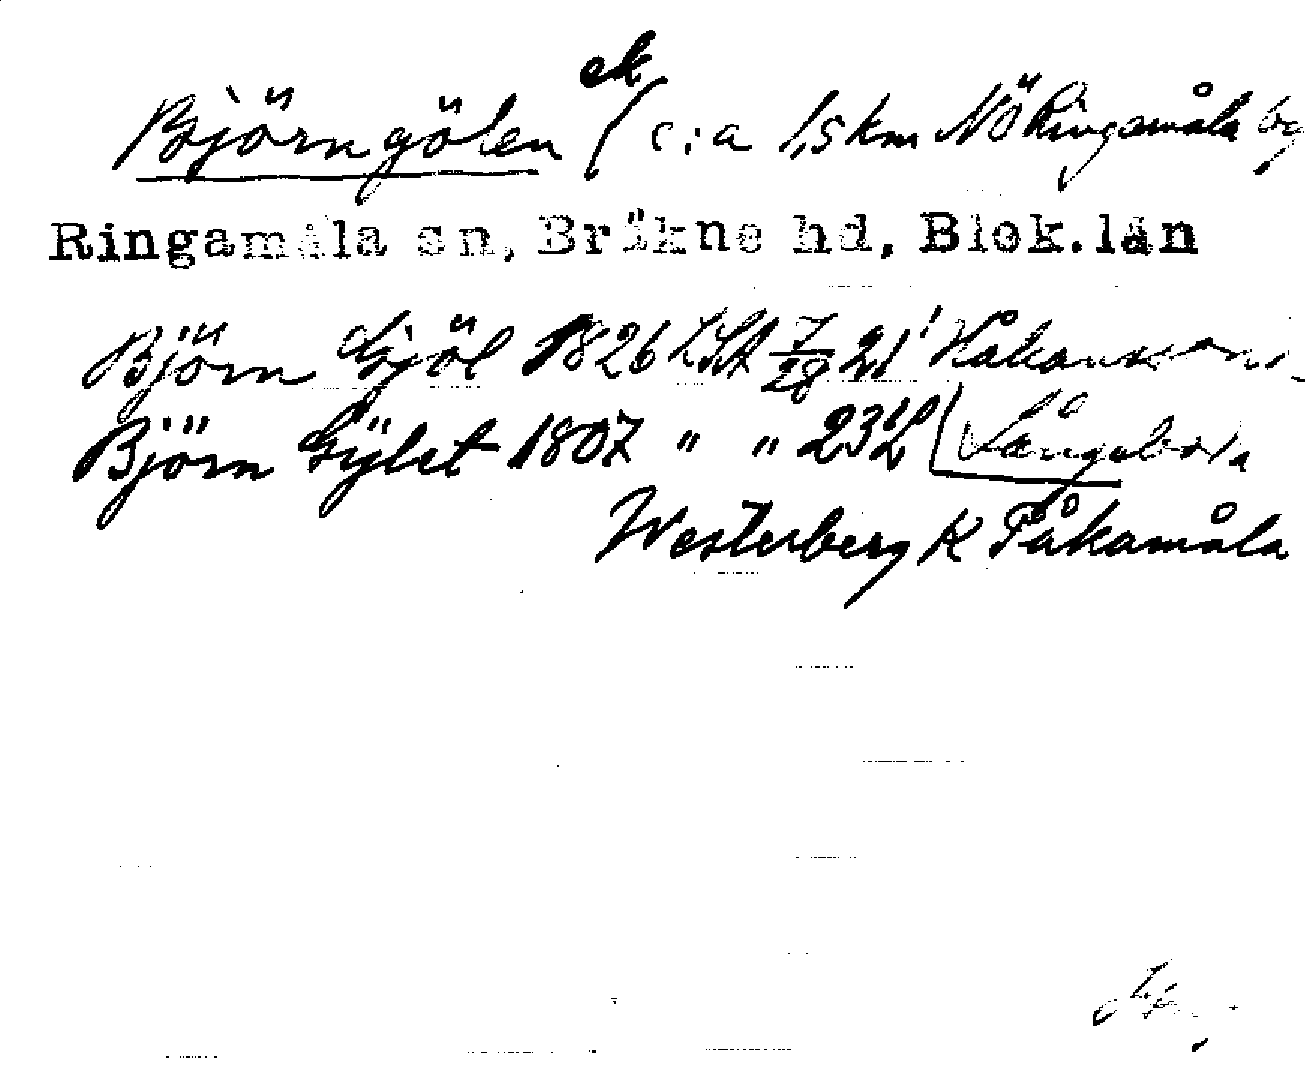 ek
Björngölen ( c:a 1,5 km NÖ Ringamåla by
Ringamåla sn, Bräkne hd, Blek.län
Björn Gjöl 1826 LSA 7/28 21' Håkansson
Björn Gÿlet 1807 " " 23 Långaboda
Westerberg K Påkamåla